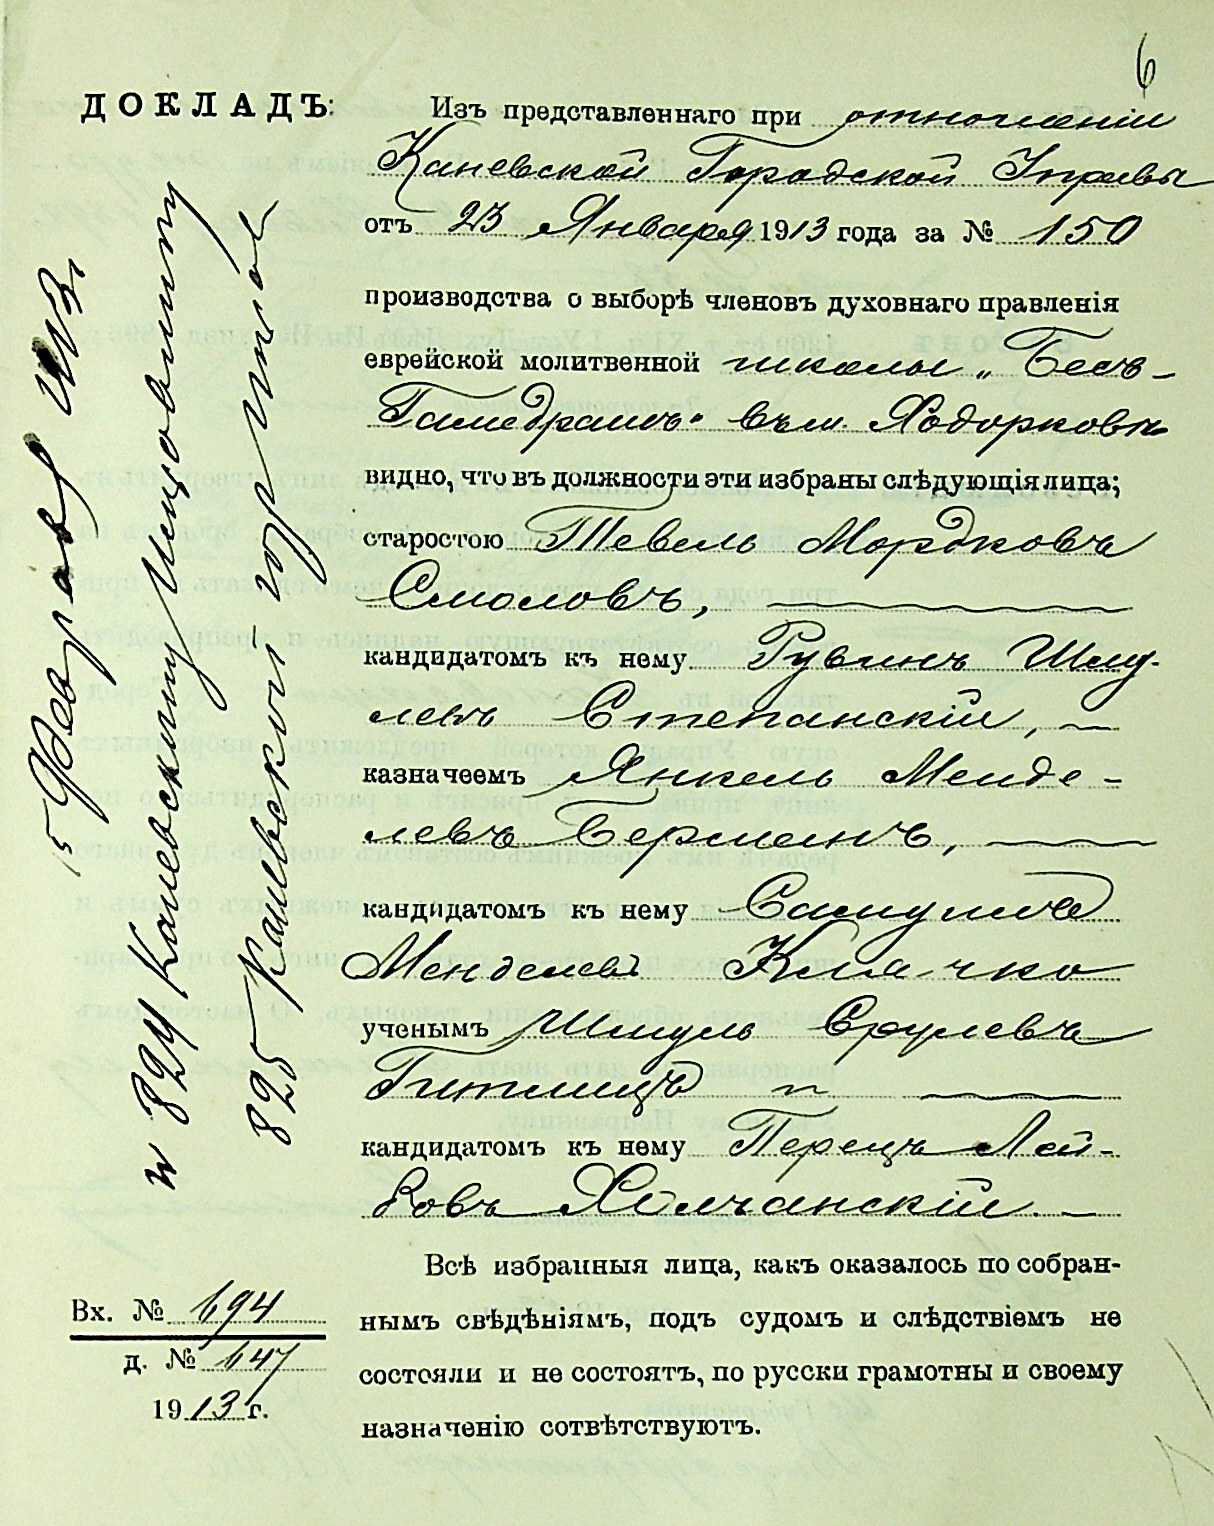 6
ДОКЛАДЪ:
Изъ представленнаго при отношеніи
Каневской Городской Управы
отъ 23 Января 1913 года за № 150
производства о выборѣ членовъ духовнаго правленія
еврейской молитвенной школы „Бесъ-
Гамедрашъ" въ м. Ходорковѣ
видно, что въ должности эти избраны слѣдующія лица;
старостою Тевель Мордковъ
Смоловъ,
кандидатомъ къ нему Рувинъ Шму-
левъ Степанскій,
казначеемъ Янкель Менде-
левъ Берманъ,
кандидатомъ къ нему
Менделевъ Клячко
ученымъ Шмуль Срулевъ
Гитлицъ
кандидатомъ къ нему Перецъ Лей-
бовъ Хелчанскій.
Всѣ избранныя лица, какъ оказалось по собран-
нымъ свѣдѣніямъ, подъ судомъ и слѣдствіемъ не
состояли и не состоятъ, по русски грамотны и своему
назначенію сотвѣтствуютъ.
15 Февраля 1913 г.
№ 824 Каневскому
825 Каневской гор.
Вх. № 694
д. № 647
1913 г.